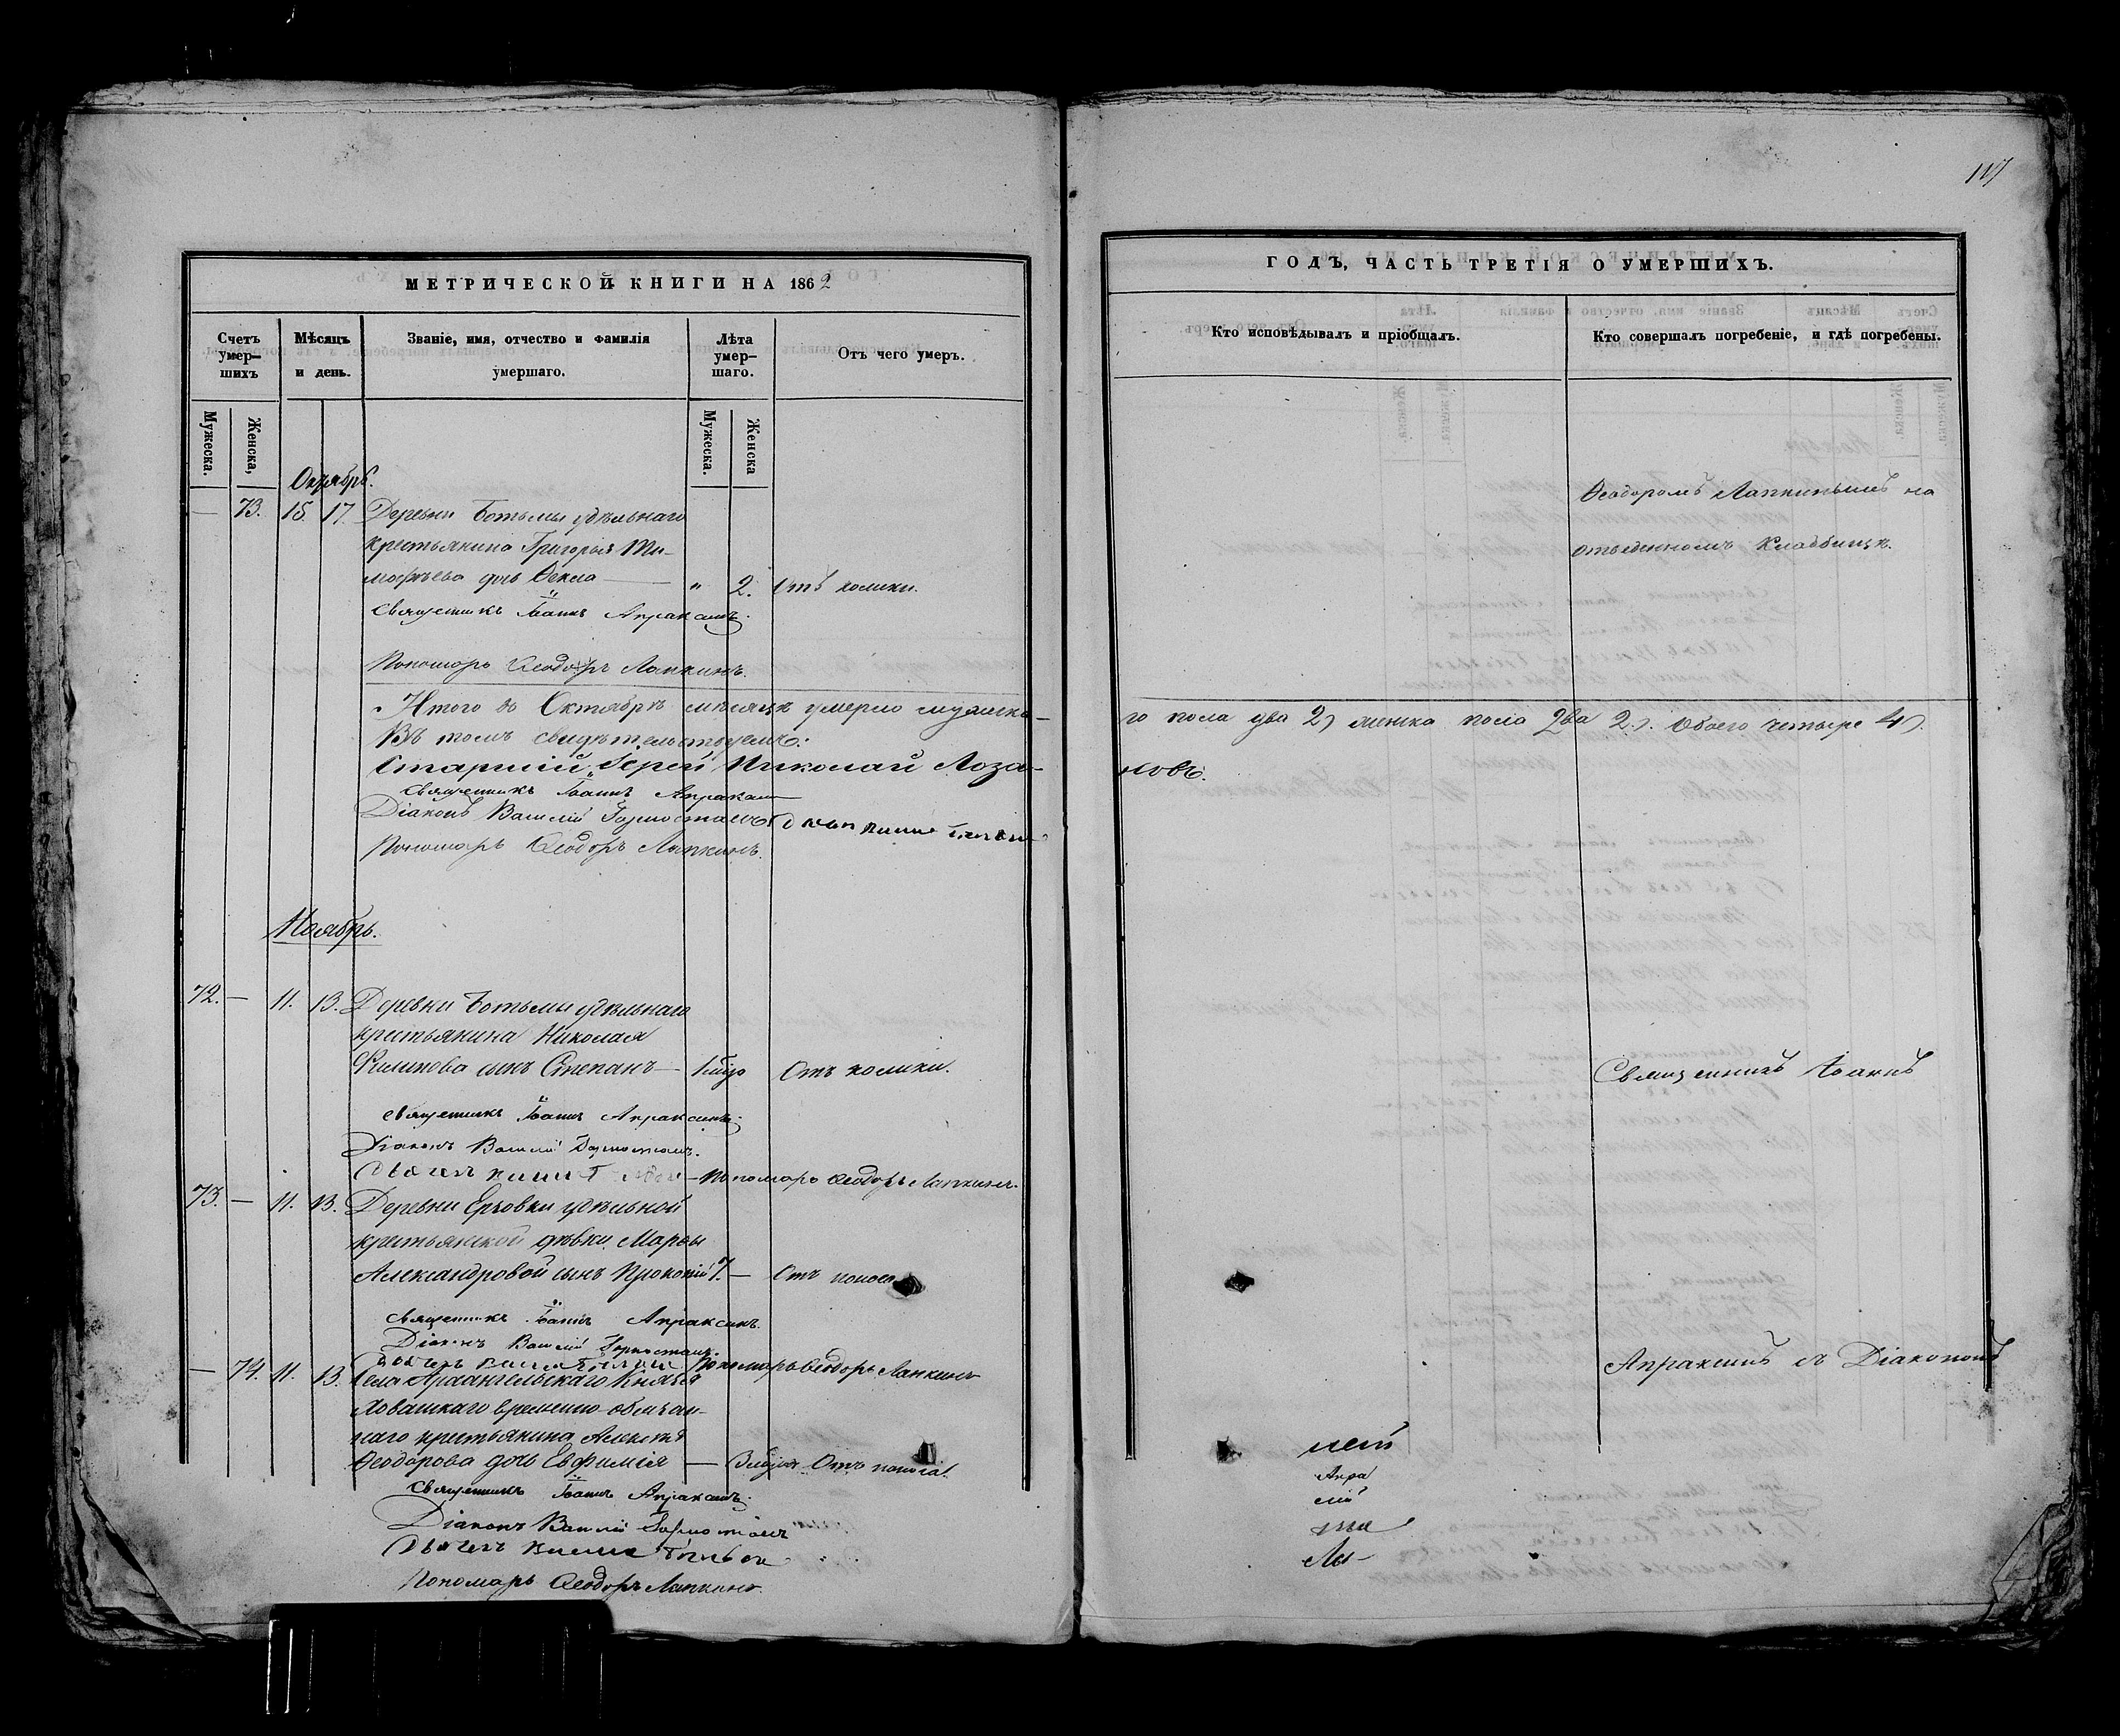 117
МЕТРИЧЕСКОЙ КНИГИ НА 1862
Счетъ умер-шихъ
Мѣсяцъ и день.
Званіе, имя, отчество и фамилія умершаго.
Лѣта умер-шаго.
Отъ чего умеръ.
Мужеска.
Женска,
Мужеска.
Женска
Октябрь.
— 73. 15. 17. Деревни Ботьмы удѣльнаго
крестьянина Григорья Ти-
мофѣева дочь Ѳекла — „ 2. Отъ колики.
Священникъ Іоаннъ Апраксинъ.
Пономарь Ѳеодоръ Лапкинъ.
Итого въ Октябрѣ мѣсяцѣ умерло мужеска-
Въ томъ свидѣтельствуемъ:
Старшій Іерей Николай Лоза-
Священникъ Іоаннъ Апраксин
Діаконъ Василій
Пономарь Ѳеодоръ Лапкинъ.
Ноябрь.
72. — 11. 13. Деревни Ботьмы удѣльнаго
крестьянина Николая
Филипова сынъ Степанъ — Отъ колики.
Священникъ Іоаннъ Апраксинъ.
Діаконъ Василій
Пономарь Ѳеодоръ Лапкинъ.
73. — 11. 13. Деревни Ерзовки удѣльной
крестьянской дѣвки Марѳы
Александровой сынъ Прокопій 7. — Отъ поноса
Священникъ Іоаннъ Апраксинъ.
Діаконъ Василій
Пономарь Ѳеодоръ Лапкинъ
— 74. 11. 13. Села Архангельскаго Князя
Хованскаго временно-обязан-
наго крестьянина Алексѣя
Ѳеодорова дочь Евфимія — Отъ поноса.
Священникъ Іоаннъ Апраксинъ.
Діаконъ Василій
Пономарь Ѳеодоръ Лапкинъ.
ГОДЪ, ЧАСТЬ ТРЕТІЯ О УМЕРШИХЪ.
Кто исповѣдывалъ и пріобщалъ.
Кто совершалъ погребеніе, и гдѣ погребены.
Ѳеодоромъ Лапкинымъ на
отведенномъ Кладбищѣ.
го пола два 2) женска пола два 2). Обоего четыре 4).
новъ.
Священникъ Іоаннъ
Апраксинъ съ Діакономъ